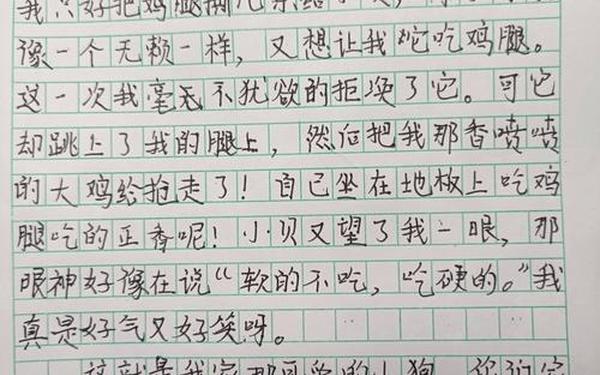 我只好把鸡腿撕几条给
像一个无赖一样，又想让我它吃鸡腿。
这一次我毫无不犹欲的拒涣了它。可它
却跳上了我的腿上，然后把我那香喷喷
的大鸡给抢走了！自己坐在地板上吃鸡
腿吃的正香呢！小贝又望了我一眼，那
眼神好像在说“软的不吃，吃硬的。”我
真是好气又好笑呀。
这就是我家那可爱的小狗，你们家